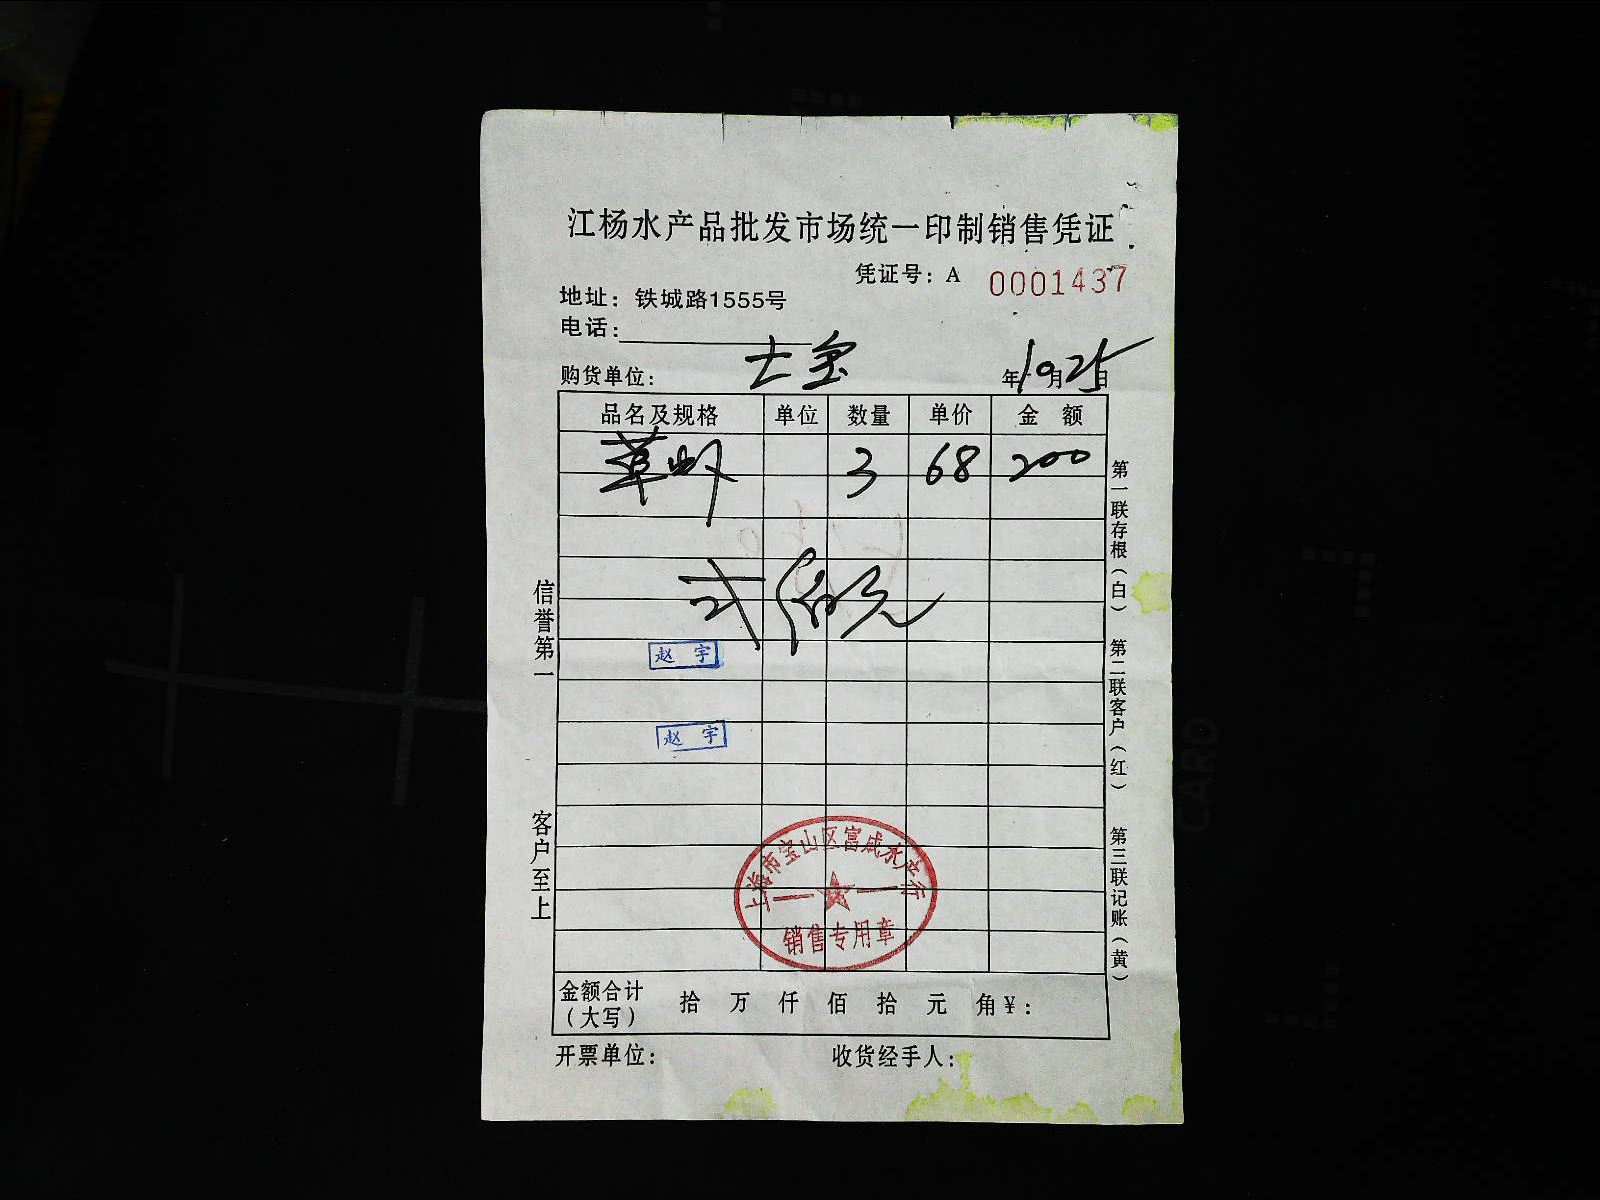 江杨水产品批发市场统一印制销售凭证
凭证号：A 0001437
地址：铁城路1555号
电话：
购货单位： 士宝 年10月25日
品名及规格 单位 数量 单价 金 额
草虾 3 68 200
弍佰元
赵 宇
赵 宇
上海市宝山区富威水产行
销售专用章
金额合计
（大写） 拾 万 仟 佰 拾 元 角￥：
开票单位： 收货经手人：
信誉第一
客户至上
第一联存根（白）
第二联客户（红）
第三联记账（黄）
CARD